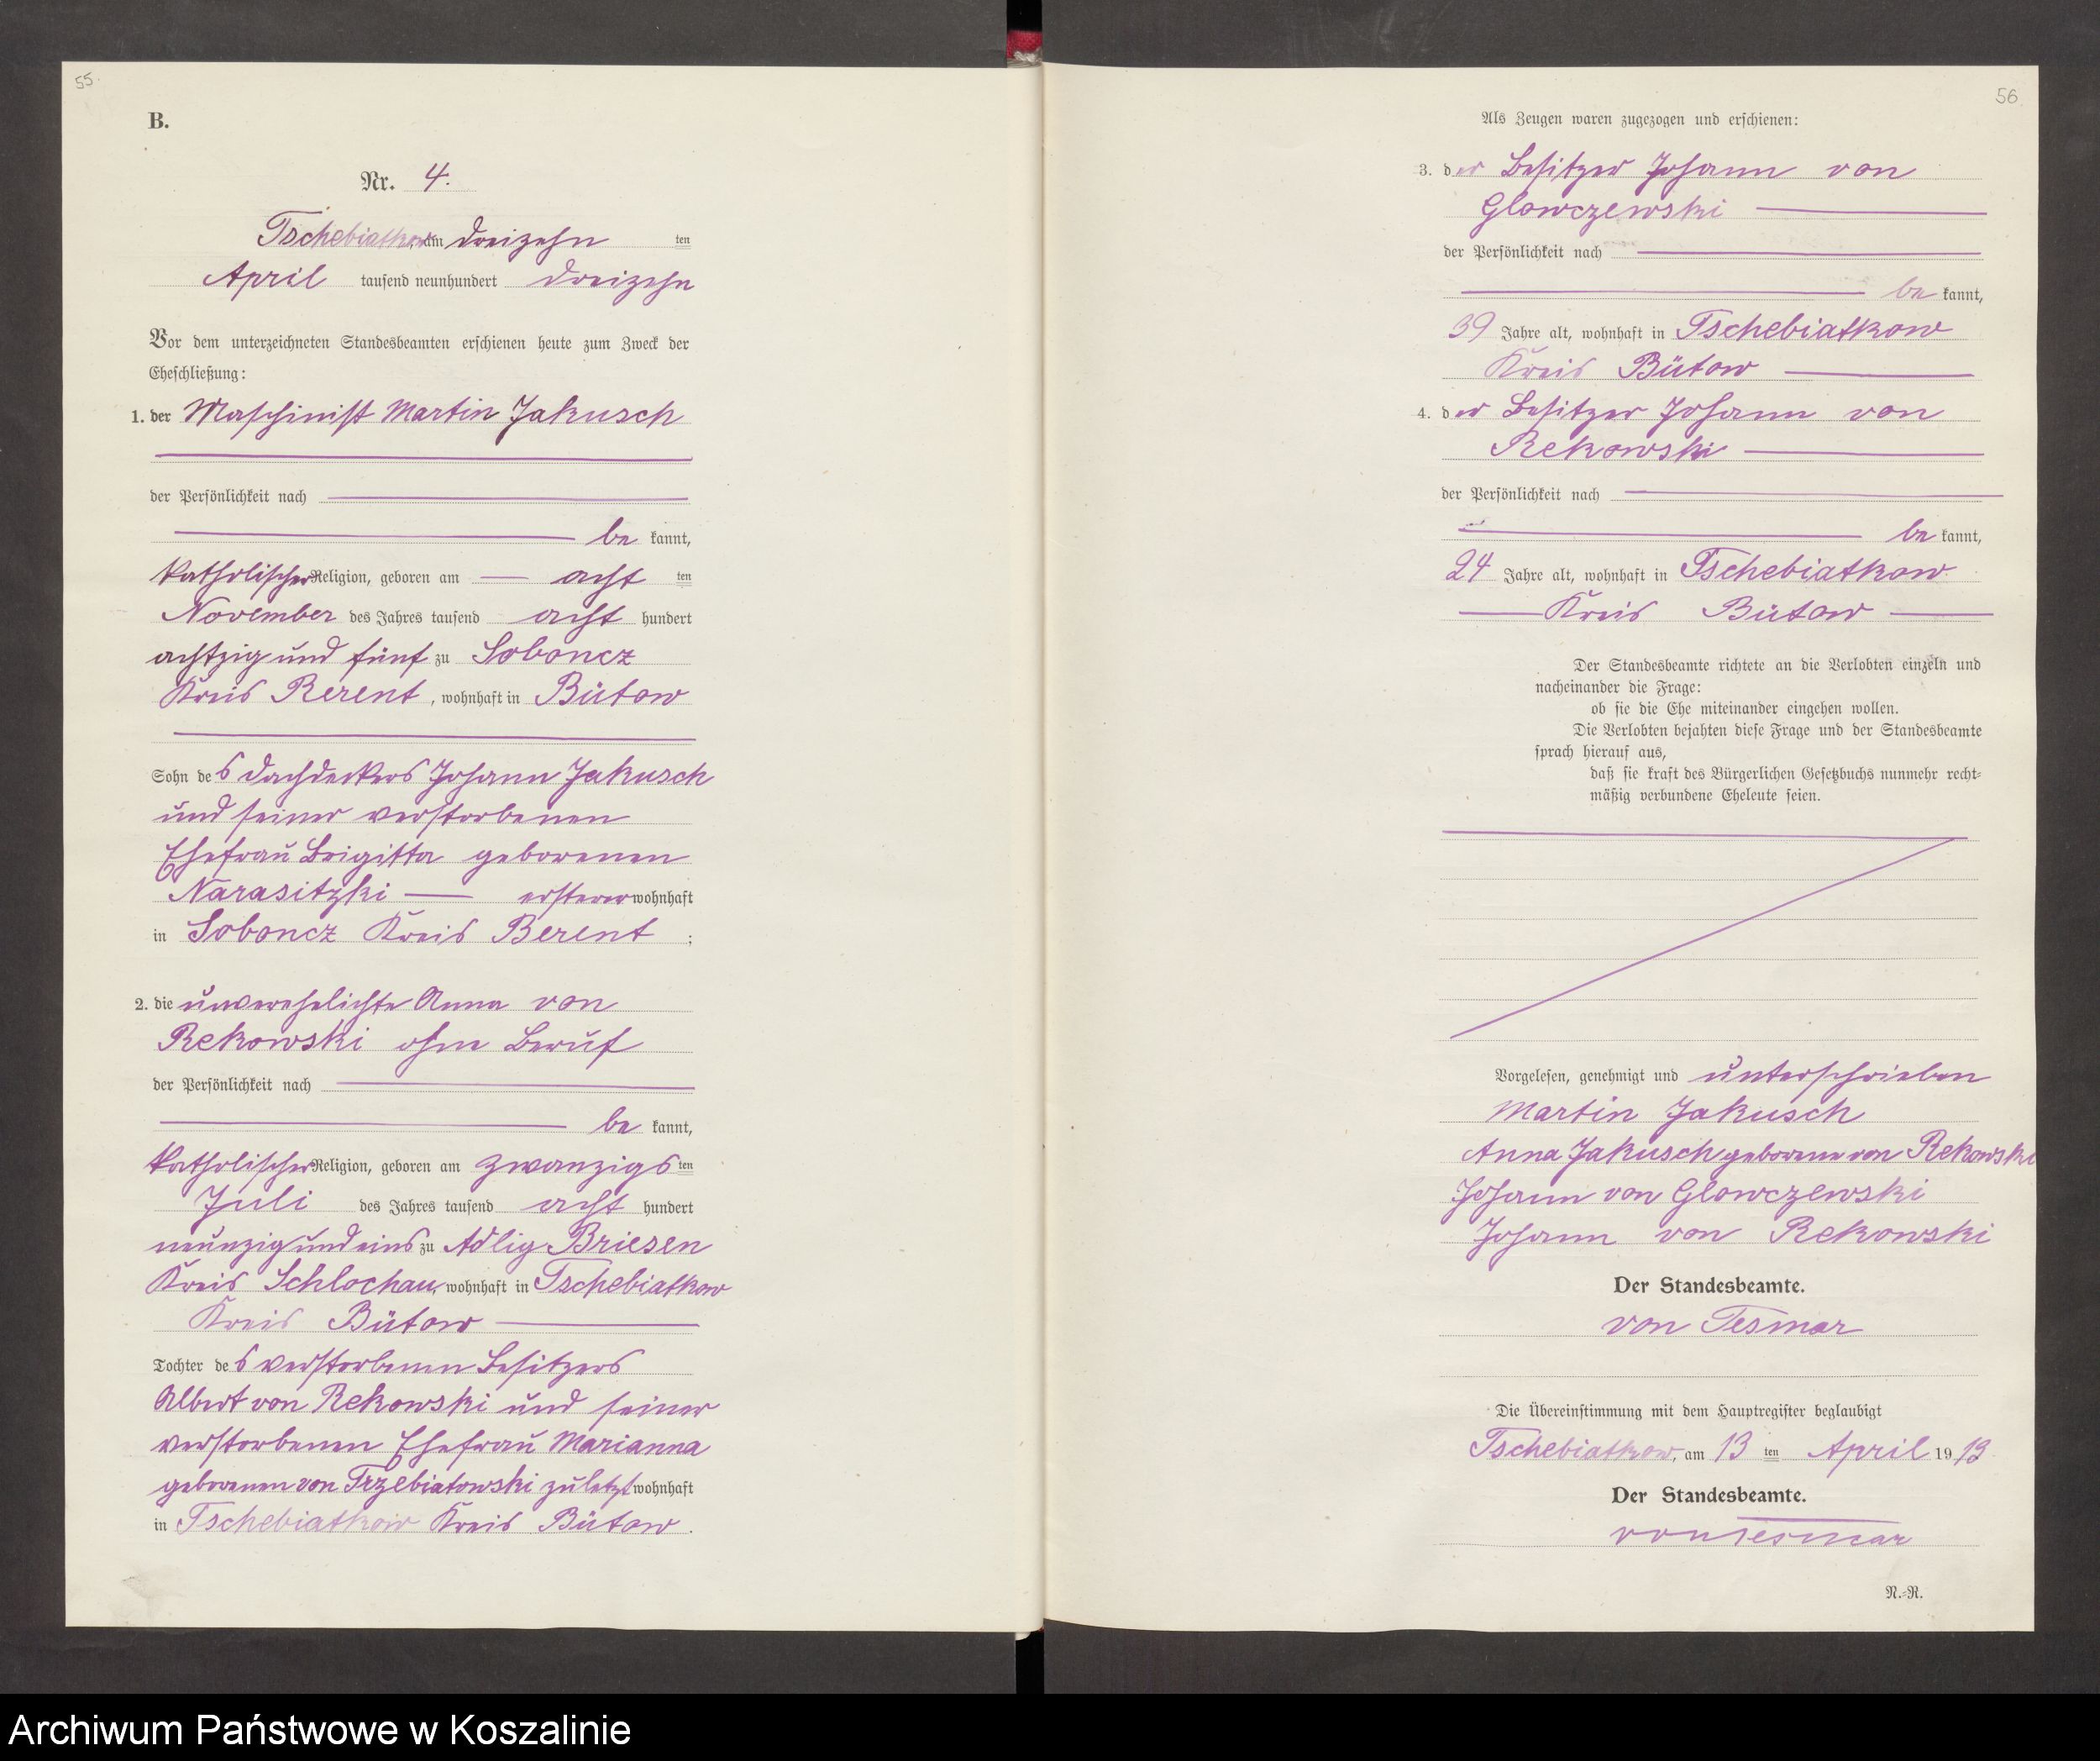 55.
B.
Nr. 4.
Tschebiatkow, am dreizehn ten
April tausend neunhundert dreizehn
Vor dem unterzeichneten Standesbeamten erschienen heute zum Zweck der
Eheschließung:
1. der Maschinist Martin Jakusch
der Persönlichkeit nach
be kannt,
katholischer Religion, geboren am acht ten
November des Jahres tausend acht hundert
achtzig und fünf zu Soboncz
Kreis Berent, wohnhaft in Bütow
Sohn des Dachdeckers Johann Jakusch
und seiner verstorbenen
Ehefrau Brigitta geborenen
Narasitzki ersterer wohnhaft
in Soboncz Kreis Berent ;
2. die unverehelichte Anna von
Rekowski ohne Beruf
der Persönlichkeit nach
be kannt,
katholischer Religion, geboren am zwanzigsten
Juli des Jahres tausend acht hundert
neunzig und eins zu Adlig Briesen
Kreis Schlochau, wohnhaft in Tschebiatkow
Kreis Bütow
Tochter des verstorbenen Besitzers
Albert von Rekowski und seiner
verstorbenen Ehefrau Marianna
geborenen von Trzebiatowski zuletzt wohnhaft
in Tschebiatkow Kreis Bütow.
56
Als Zeugen waren zugezogen und erschienen:
3. der Besitzer Johann von
Glowczewski
der Persönlichkeit nach
be kannt,
39 Jahre alt, wohnhaft in Tschebiatkow
Kreis Bütow
4. der Besitzer Johann von
Rekowski
der Persönlichkeit nach
be kannt,
24 Jahre alt, wohnhaft in Tschebiatkow
Kreis Bütow
Der Standesbeamte richtete an die Verlobten einzeln und
nacheinander die Frage:
ob sie die Ehe miteinander eingehen wollen.
Die Verlobten bejahten diese Frage und der Standesbeamte
sprach hierauf aus,
daß sie kraft des Bürgerlichen Gesetzbuchs nunmehr recht-
mäßig verbundene Eheleute seien.
Vorgelesen, genehmigt und unterschrieben
Martin Jakusch
Anna Jakusch geborene von Rekowski
Johann von Glowczewski
Johann von Rekowski
Der Standesbeamte.
von Tesmar
Die Übereinstimmung mit dem Hauptregister beglaubigt
Tschebiatkow, am 13 ten April 1913
Der Standesbeamte.
von Tesmar
N.-R.
Archiwum Państwowe w Koszalinie